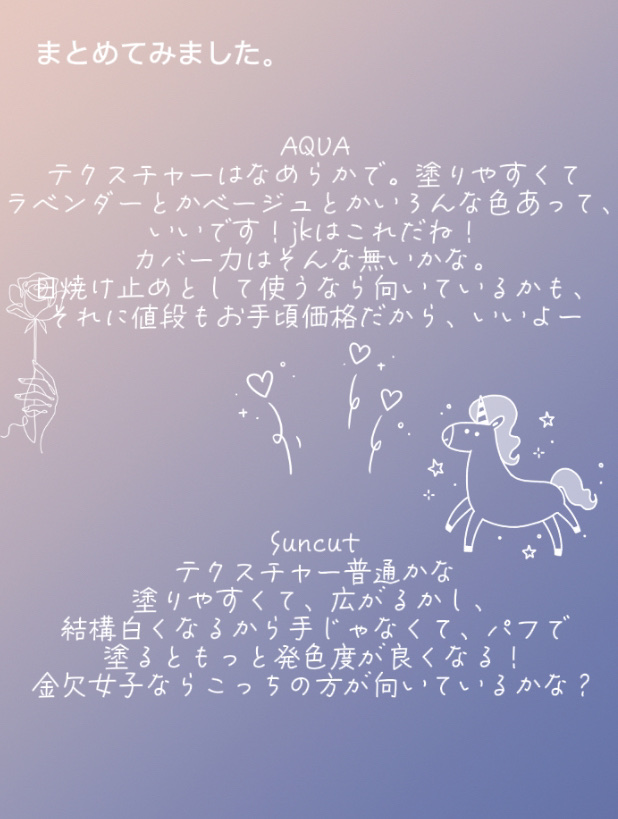 まとめてみました。
AQUA
テクスチャーはなめらかで。塗りやすくて
ラベンダーとかベージュとかいろんな色あって、
いいです！jkはこれだね！
カバー力はそんな無いかな。
日焼け止めとして使うなら向いているかも、
それに値段もお手頃価格だから、いいよー
Suncut
テクスチャー普通かな
塗りやすくて、広がるかし、
結構白くなるから手じゃなくて、パフで
塗るともっと発色度が良くなる！
金欠女子ならこっちの方が向いているかな？